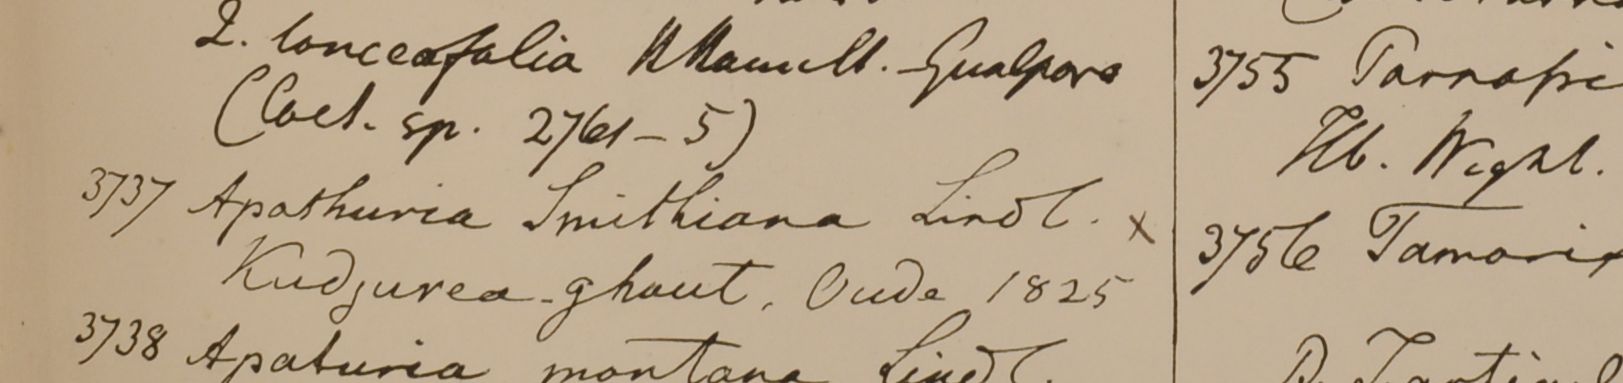 2. lanceafolia HHamilt. Gualpara
(Coel. sp. 2761-5)
3737 Apathuria Smithiana Lindl. x
Kudjurea-ghaut, Oude 1825
3738 Apaturia montana Lindl.
3755
Hb. Wight.
3756 Tamarix